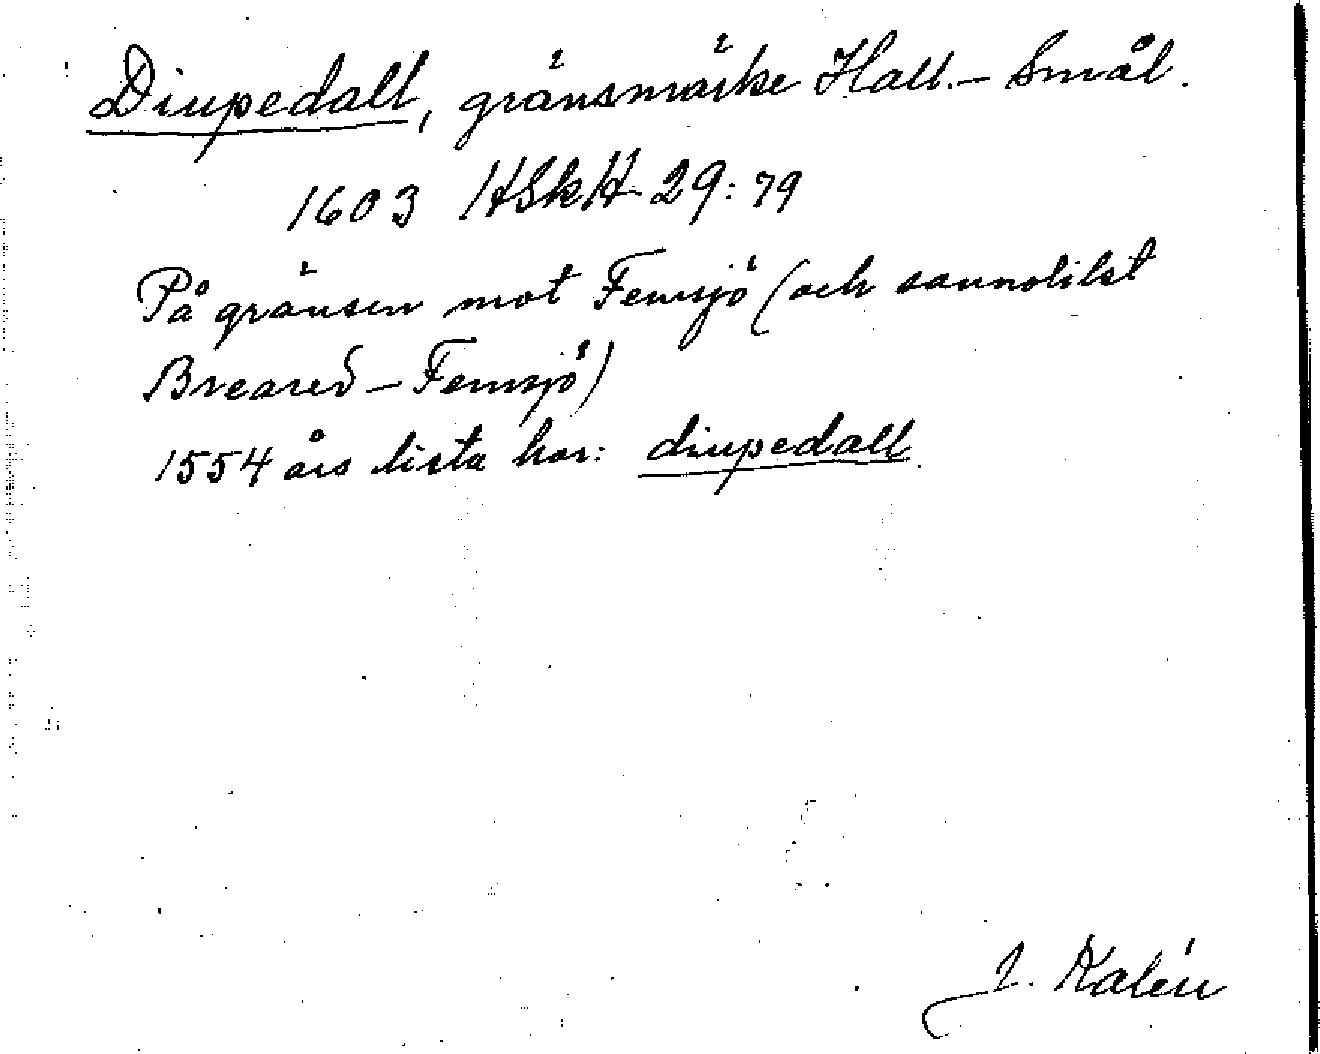 Diupedall, gränsmärke Hall.- Smål.
1603 HSkH 29: 79
På gränsen mot Femsjö (och sannolikt
Breared - Femsjö)
1554 års lista har: diupedall
J. Kalén